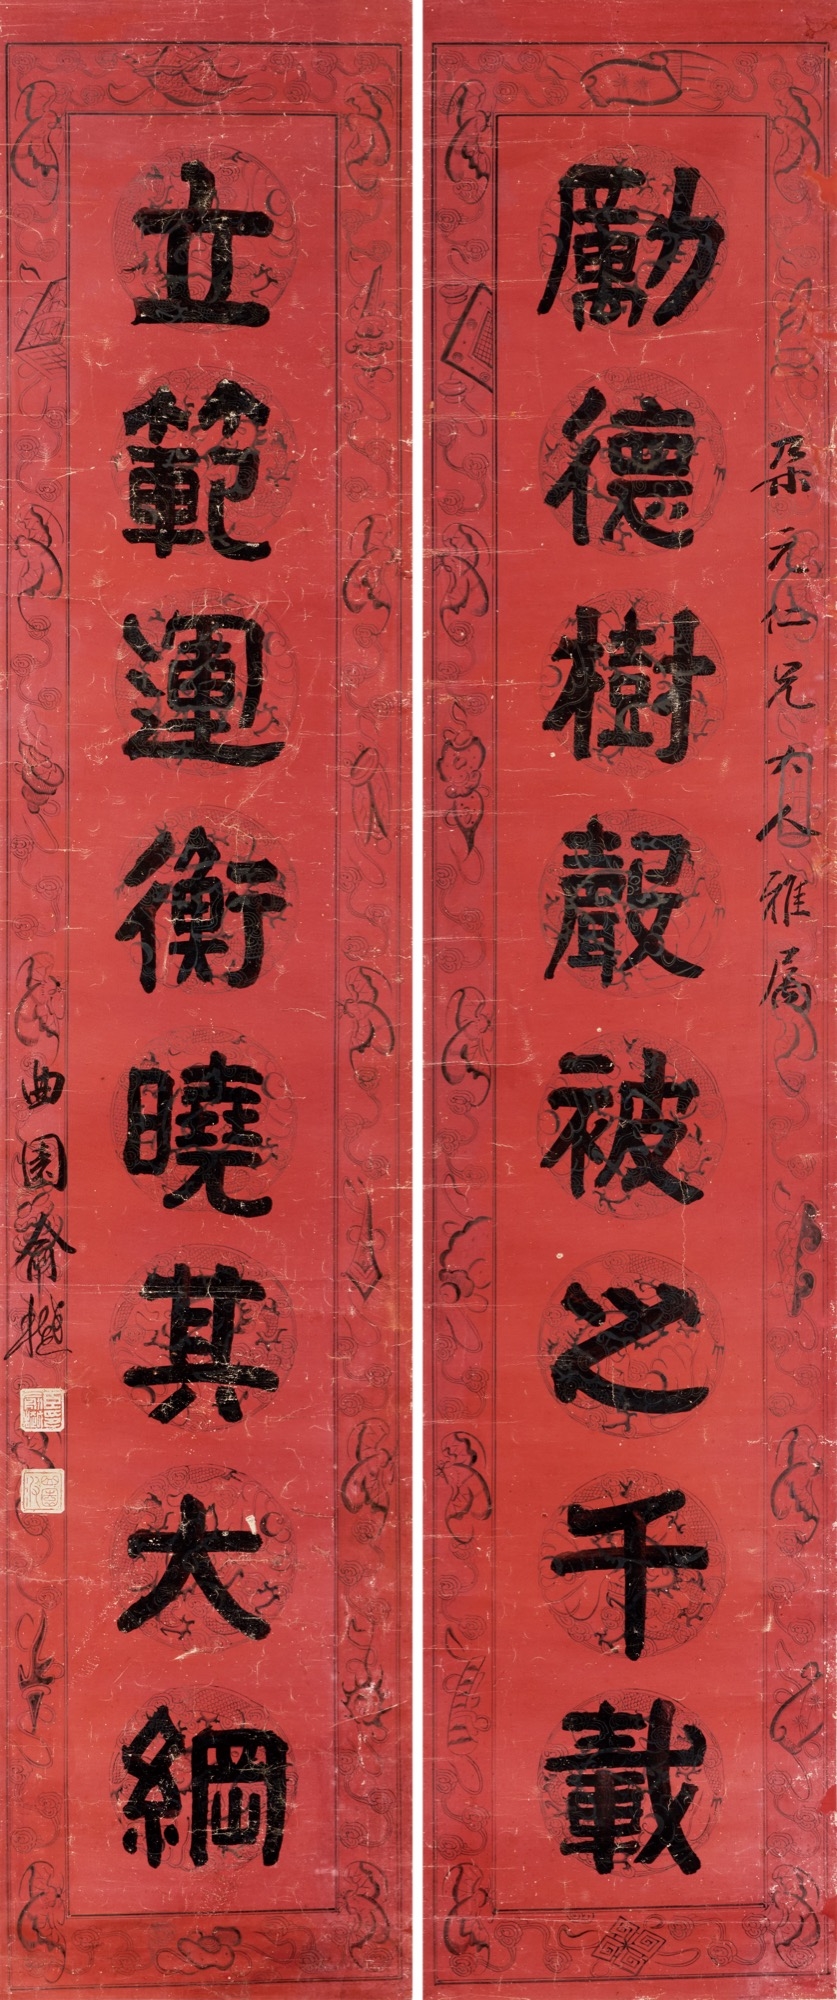 朵元仁兄大人雅属
勵德樹聲被之千載
立範運衡曉其大綱
曲園俞樾